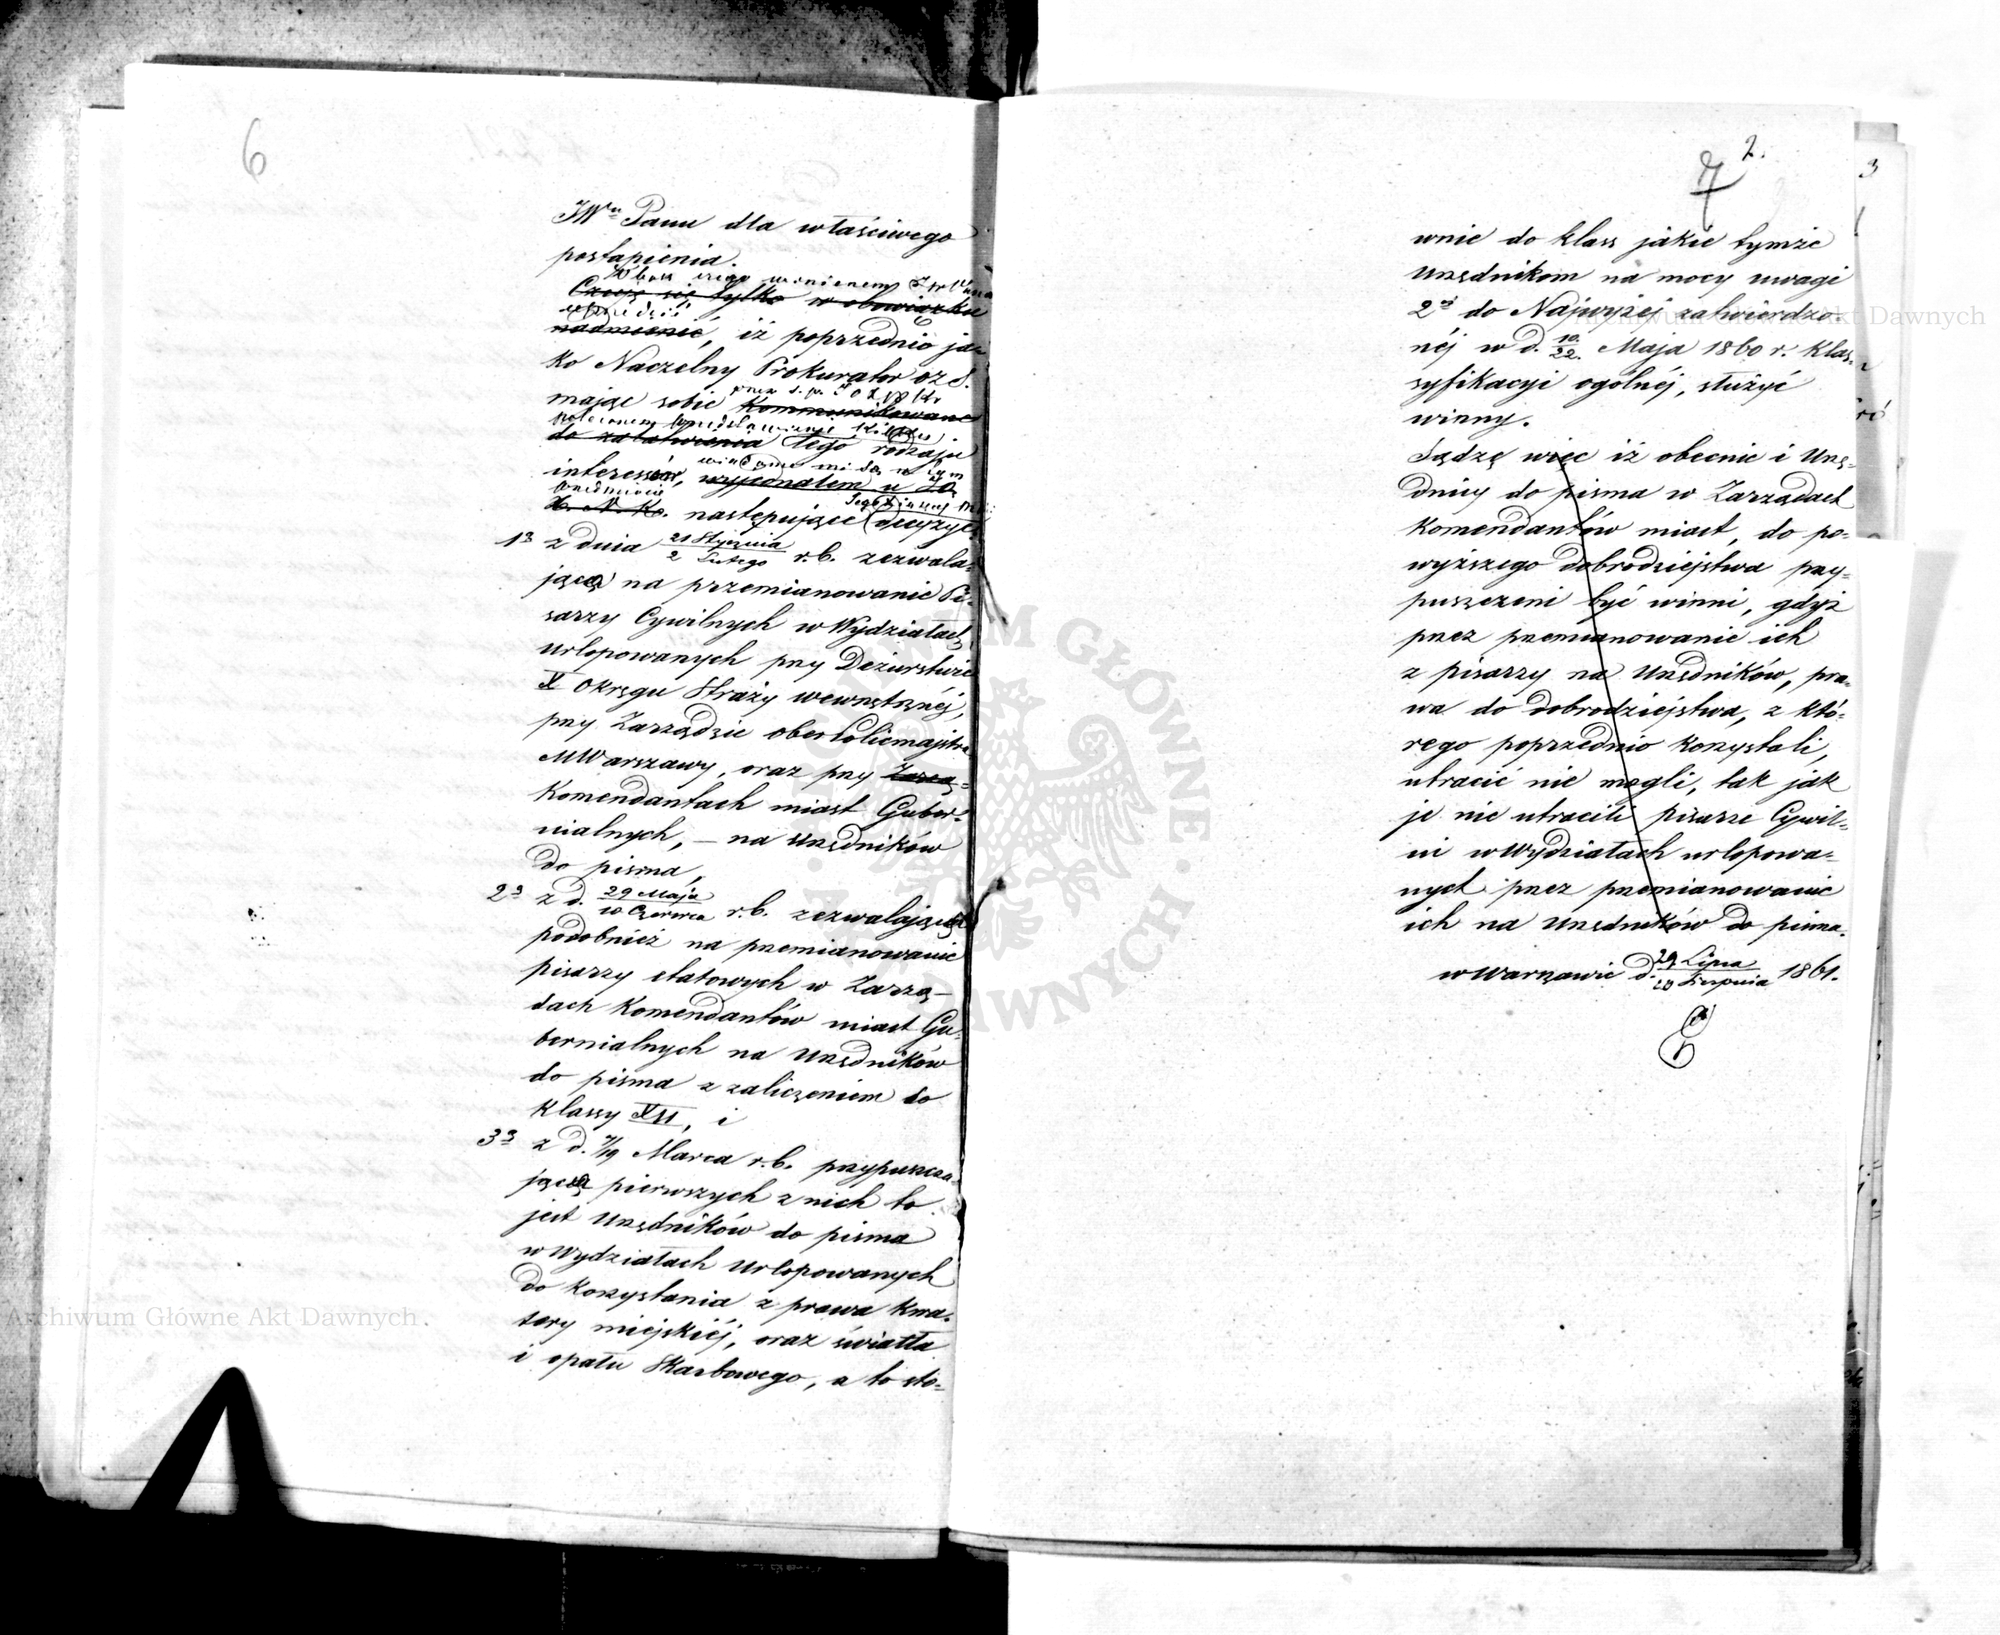 6
JWu Panu dla właściwego
postąpienia.
Obok czego winienem JW Pana
Czuję się tylko w obowiązku
uprzedzić
nadmienić, iż poprzednio ja-
ko Naczelny Prokurator O Z S.
mając sobie kommunikowane
do załatwienia tego rodzaju
wiadome mi są w tym
interessów, wyjednałem u JO
przedmiocie
X. N. Ko. następujące decyzye
1o z dnia 21 Stycznia / 2 Lutego r.b. zezwala-
jącą na przemianowanie Pi-
sarzy Cywilnych w Wydziałach
Urlopowanych przy Dezurstwie
X Okręgu Straży wewnętrznéj,
przy Zarządzie oberPolicmajstra
M Warszawy, oraz przy Zarzą-
Komendantach miast Guber-
nialnych, — na Urzędników
do pisma,
2o z d. 29 Maja / 10 Czerwca r.b. zezwalającą
podobnież na przemianowanie
pisarzy etatowych w Zarzą-
dach Komendantów miast Gu-
bernialnych na Urzędników
do pisma z zaliczeniem do
Klassy XII, i
3o z d. 7/19 Marca r.b. przypuszcza-
jącą pierwszych z nich to
jest Urzędników do pisma
w Wydziałach Urlopowanych
do korzystania z prawa kwa-
tery miejskiéj, oraz światła
i opału Skarbowego, a to sto-
7 2.
wnie do klass jakie tymże
Urzędnikom na mocy uwagi
2éj do Najwyżéj zatwierdzo-
néj w d. 10/22 Maja 1860 r. Klas-
syfikacyi ogólnéj, służyć
winny.
Sądzę więc iż obecnie i Urzę-
dnicy do pisma w Zarządach
Komendantów miast, do po-
wyższego dobrodziejstwa przy-
puszczeni być winni, gdyż
przez przemianowanie ich
z pisarzy na Urzędników, pra-
wa do dobrodziejstwa, z któ-
rego poprzednio korzystali,
utracić nie mogli, tak jak
je nie utracili pisarze Cywil-
ni w Wydziałach urlopowa-
nych przez przemianowanie
ich na Urzędników do pisma.
w Warszawie d. 29 Lipca / 10 Sierpnia 1861.
3
Archiwum Główne Akt Dawnych
Archiwum Główne Akt Dawnych